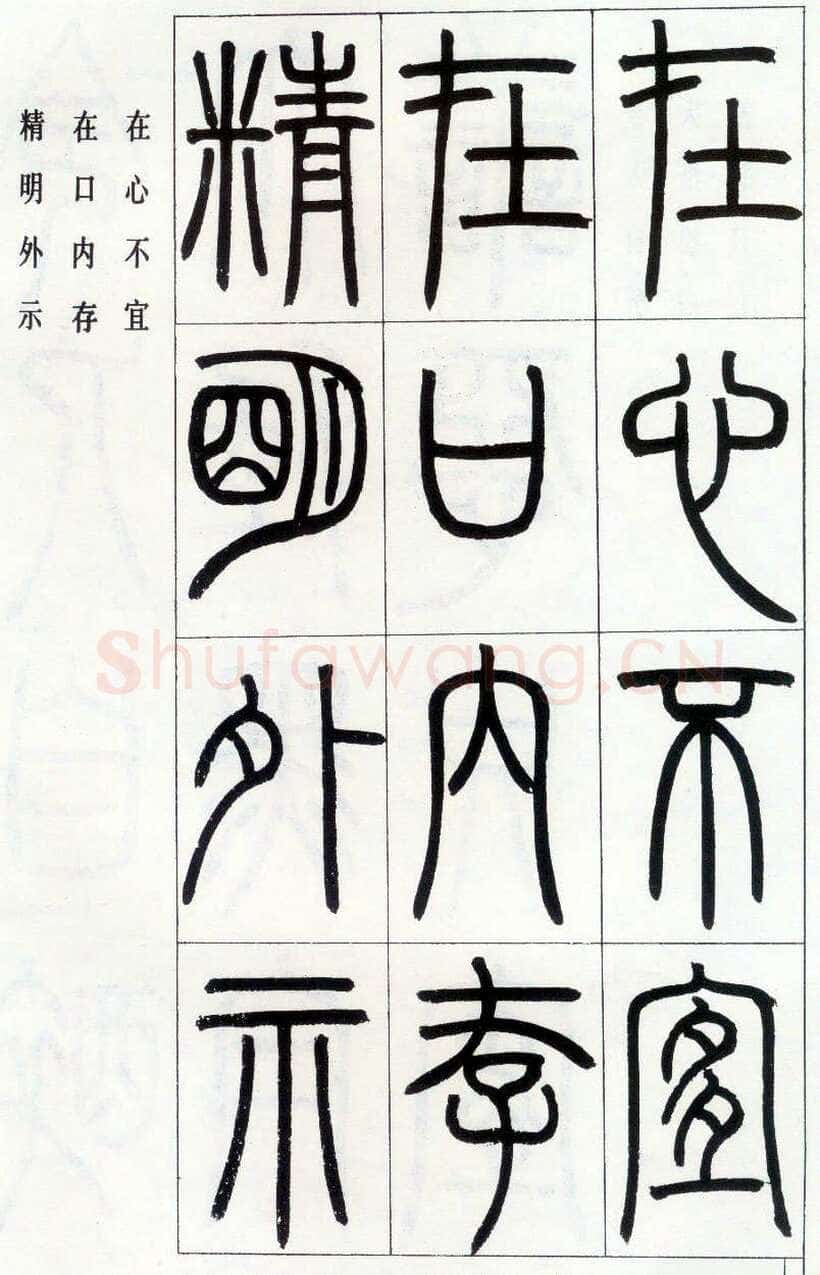 在心不宜
在口内存
精明外示
在心不宜
在口内存
精明外示
Shufawang.CN